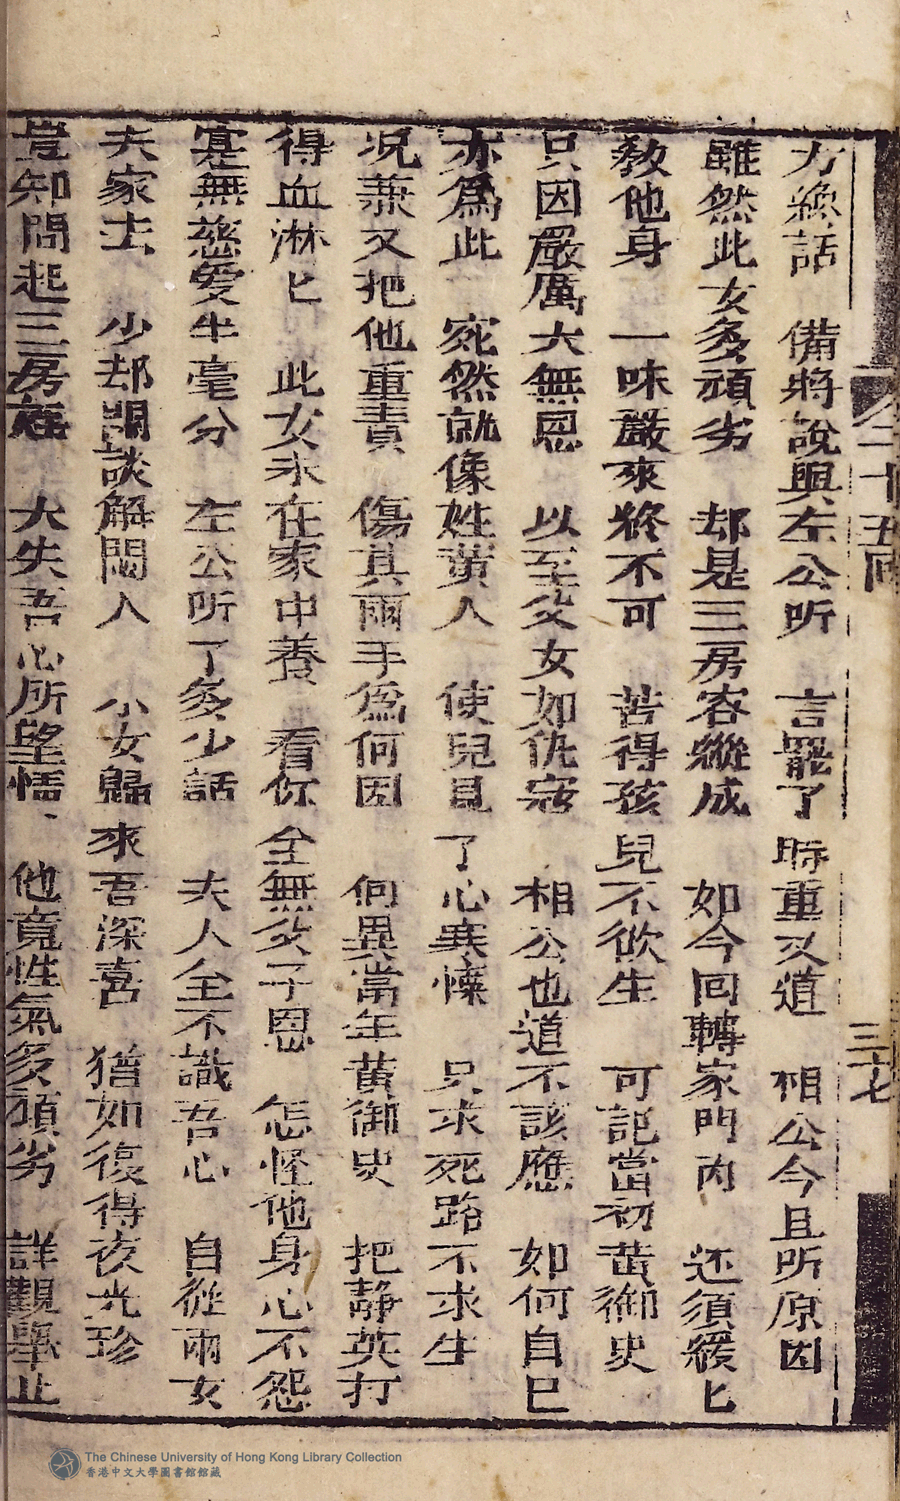 方纔話　備將說與左公听　言罷了時重又道　相公今且听原因
雖然此女多頑劣　却是三房容縱成　如今回轉家門內　还須緩匕
教他身　一味嚴來終不可　苦得孩兒不欲生　可記當初黄御史
只因嚴厲大無恩　以至父女如仇寇　相公也道不該應　如何自己
亦爲此　宛然就像姓黄人　使兒見了心寒慄　只求死路不求生
况兼又把他重責　傷其兩手爲何因　何異當年黄御史　把靜英打
得血淋匕　此女未在家中養　看你全無父子恩　怎怪他身心不怨
寔無慈爱半毫分　左公听了多少話　夫人全不識吾心　自從兩女
夫家去　少却閒談解悶人　小女歸來吾深喜　猶如復得夜光珍
豈知問起三房庭　大失吾心所望情、他竟性氣多頑劣　詳觀舉止
二十五回
三十七
The Chinese University of Hong Kong Library Collection
香港中文大學圖書館館藏